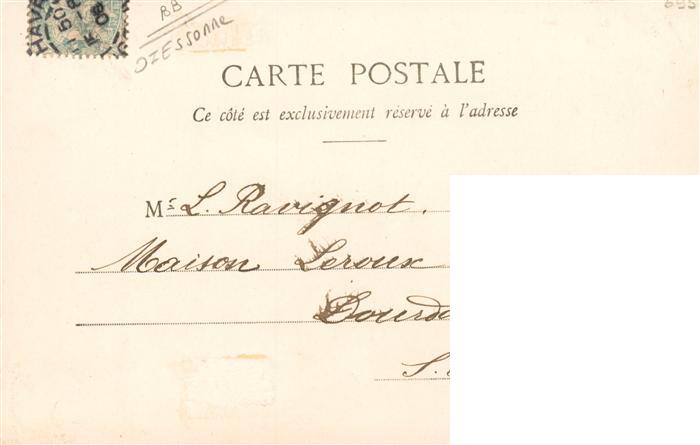 HAVR
5 50
08
BB
OZESSONNE
693
CARTE POSTALE
Ce côté est exclusivement réservé à l'adresse
Ms L. Ravignot.
Maison Leroux
Dourd
S.